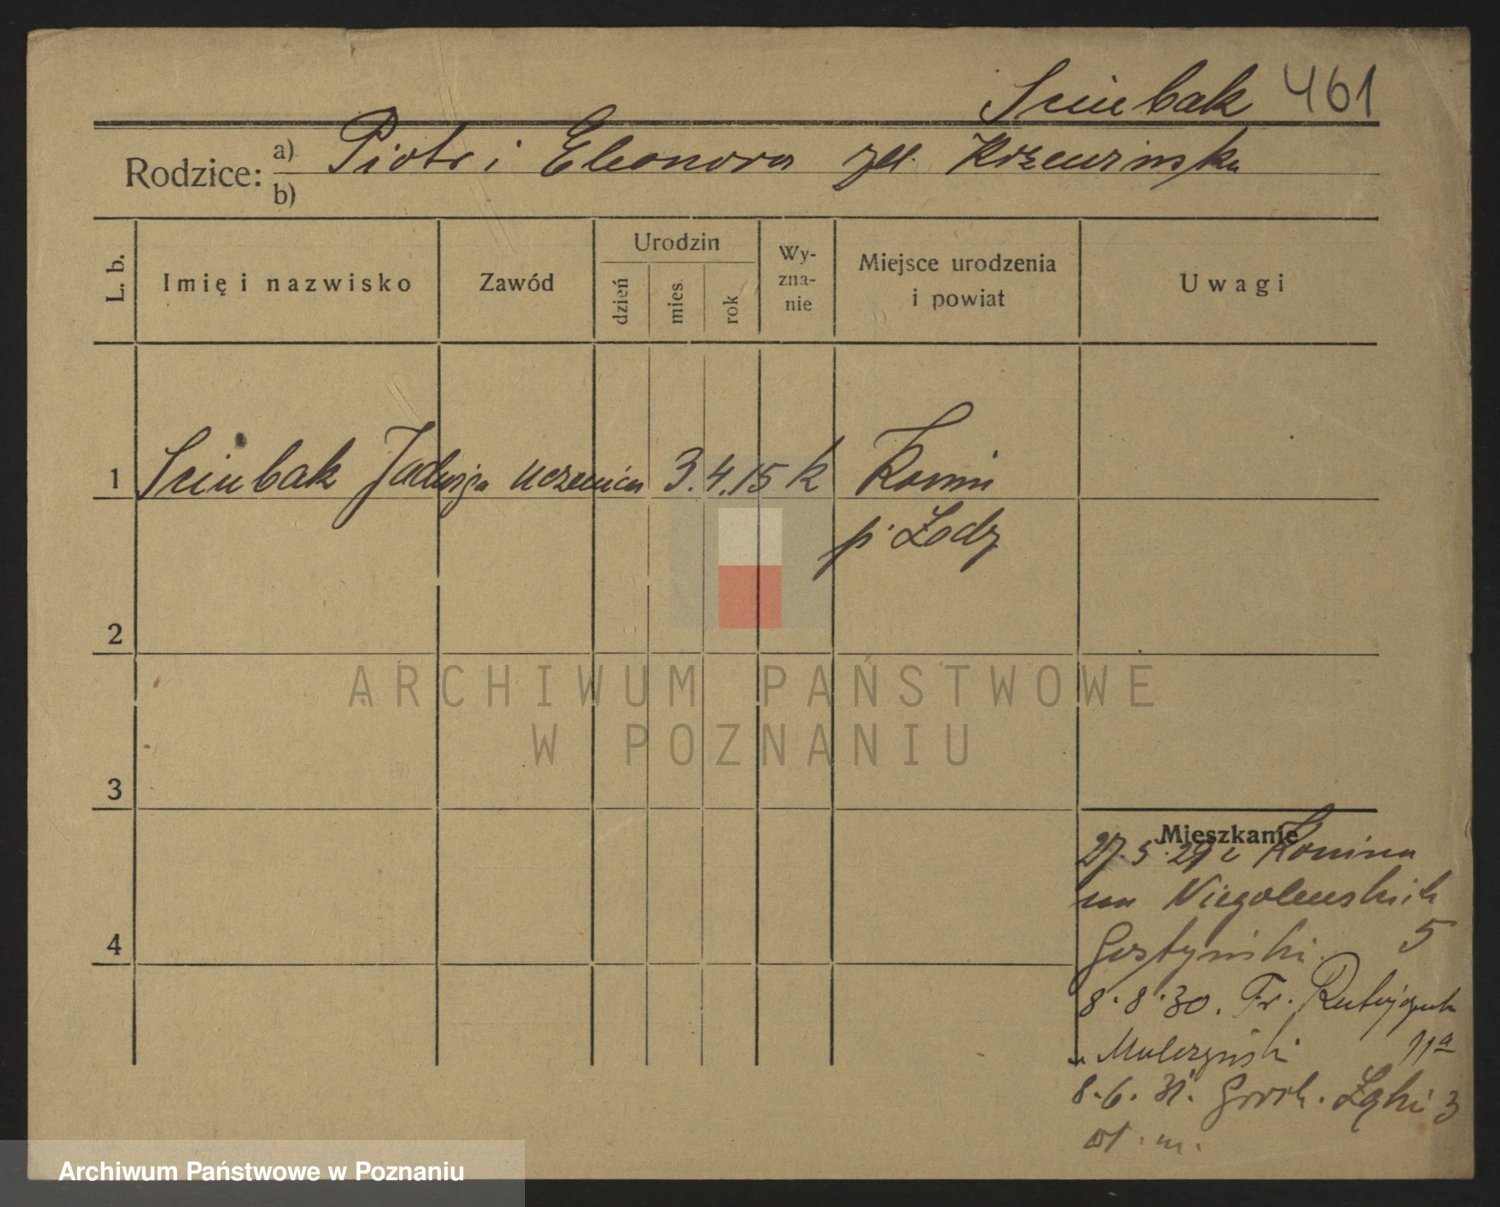 Sciubak 461
Rodzice: a) Piotr i Eleonora zd.
b)
L. b.
Imię i nazwisko
Zawód
Urodzin
dzień
mies.
rok
Wy-
zna-
nie
Miejsce urodzenia
i powiat
Uwagi
1 Sciubak Jadwiga uczenica 3.4.15 k Konin
p. Łodz
2
ARCHIWUM PAŃSTWOWE
W POZNANIU
3
Mieszkanie
27.5.29 z Konina
na Niegolewskich
Gostyński 5
4
8.8.30. Fr. Ratajczaka
u 11a
8.6.31. Groch. Łąki 3
Archiwum Państwowe w Poznaniu